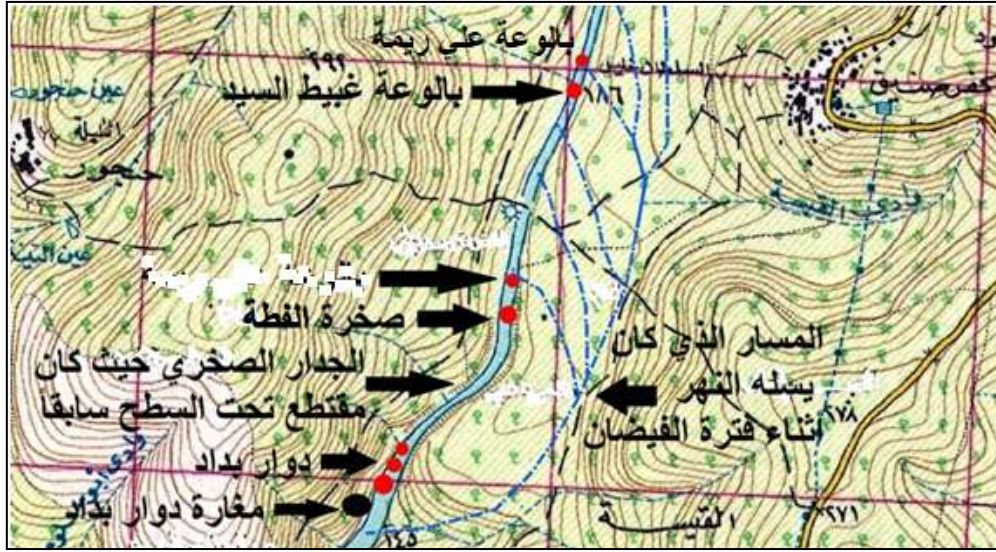 بالوعة علي ريمة
بالوعة غبيط السيد
٢٩٢
١٨٦
عين حنجور
التيلة
حنجور
عين التينة
وادي القيسة
صخرة الفطة
الجدار الصخري حيث كان
مقتطع تحت السطح سابقا
المسار الذي كان
يسله النهر
اثناء فترة الفيضان
٢٧٨
دوار بداد
مغارة دوار بداد
القيســـة
٢٧١
١٤٥